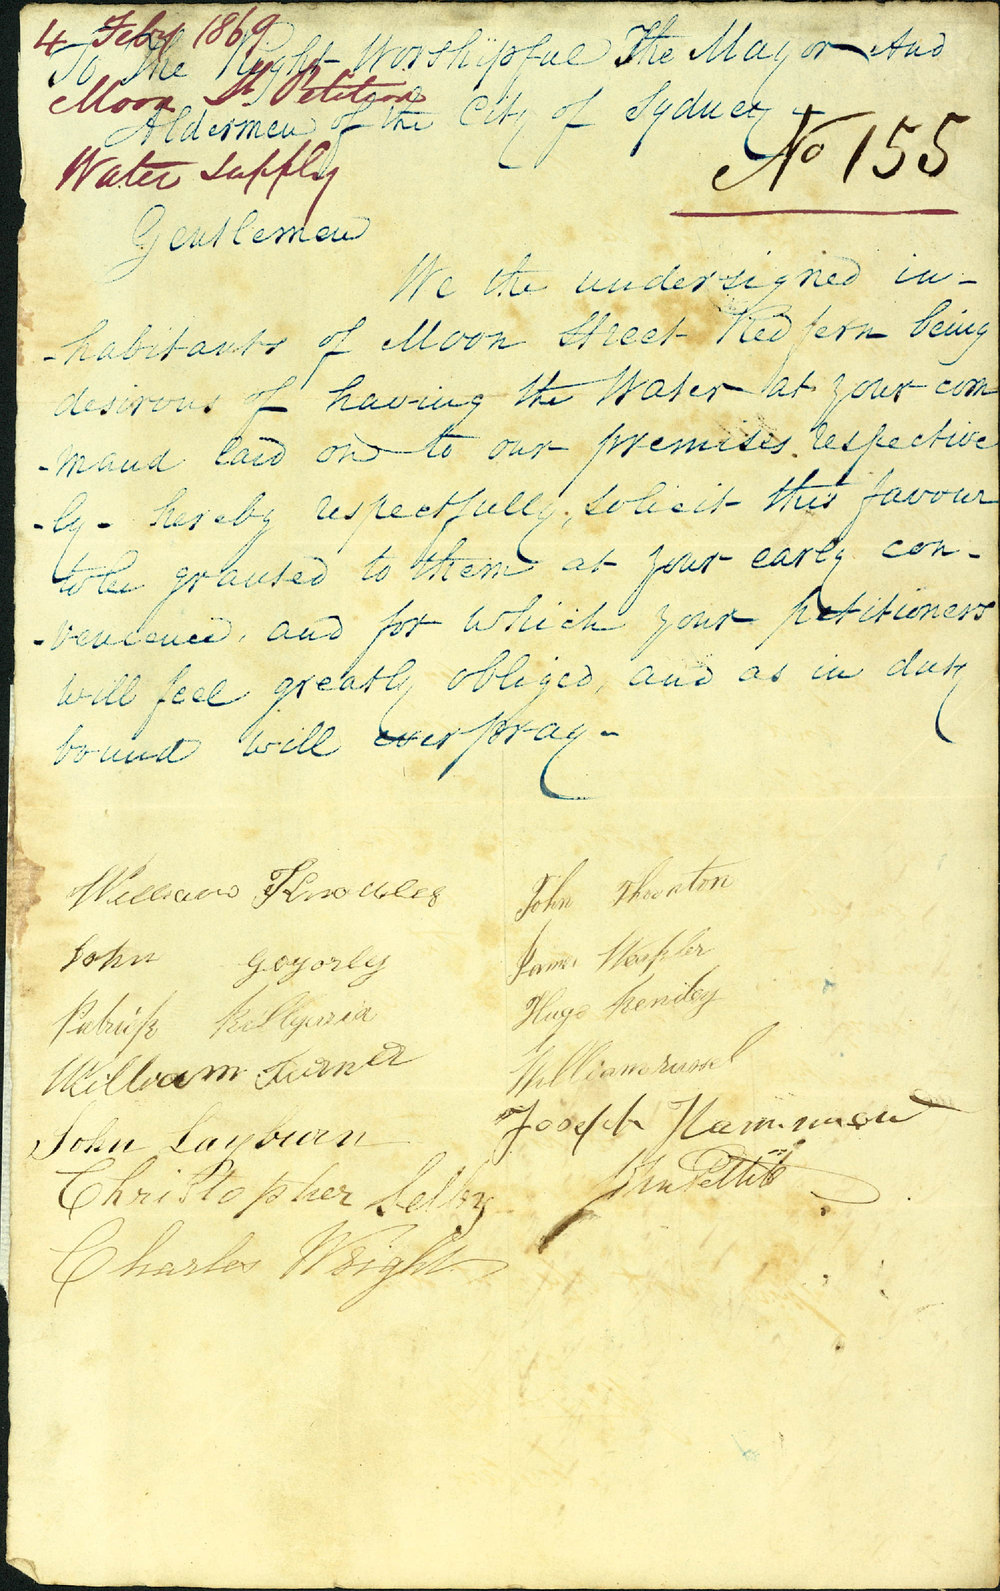 4 Feby 1869
To The Right Worshipful The Mayor And
Moon St Petition
Aldermen of the City of Sydney
No 155
Water supply
Gentlemen
We the undersigned in-
-habitants of Moon Street Redfern being
desirous of having the Water at your com
-mand laid on to our premises respective
-ly - hereby respectfully, solicit this favour
to be granted to them at your early con-
-venience, and for which your petitioners
will feel greatly obliged, and as in duty
bound will ever pray -
William Knowles
John Thornton
John
James
Patrick
Hugo
William Turner
William
John Layburn
Joseph
Christopher Selby
John Pettit
Charles Wright